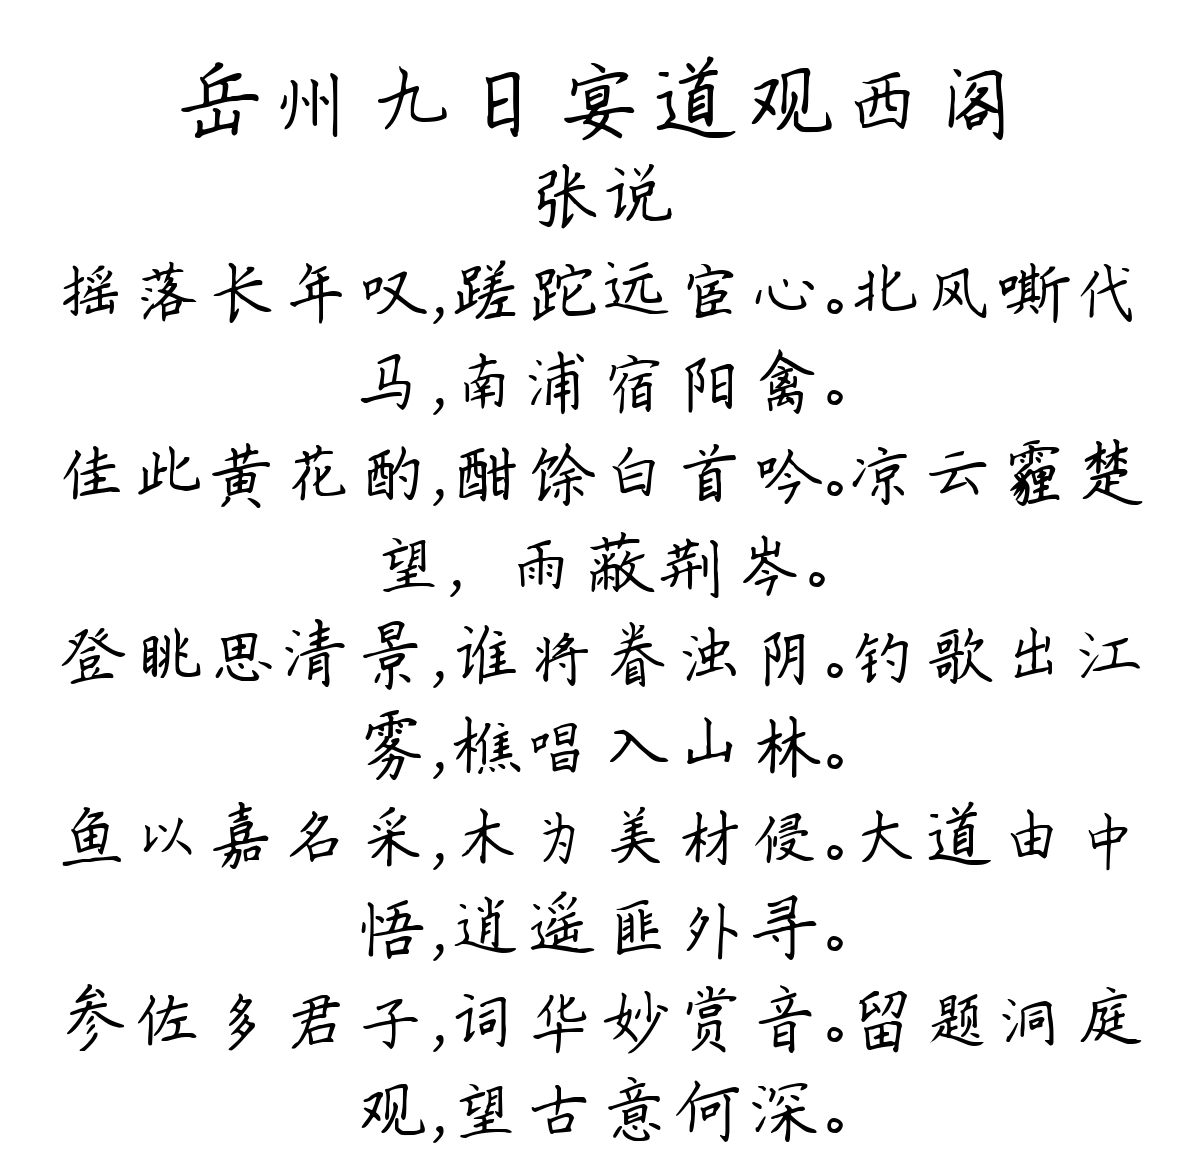 岳州九日宴道观西阁
张说
摇落长年叹,蹉跎远宦心。北风嘶代
马,南浦宿阳禽。
佳此黄花酌,酣馀白首吟。凉云霾楚
望，雨蔽荆岑。
登眺思清景,谁将眷浊阴。钓歌出江
雾,樵唱入山林。
鱼以嘉名采,木为美材侵。大道由中
悟,逍遥匪外寻。
参佐多君子,词华妙赏音。留题洞庭
观,望古意何深。